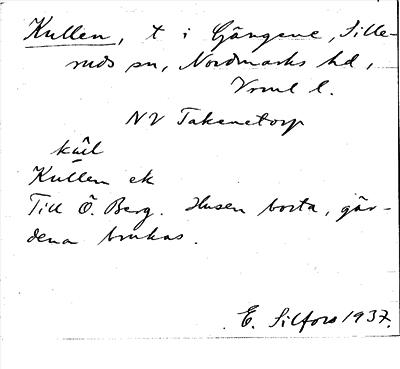 Kullen, t i Gängene, Sille-
ruds sn, Nordmarks hd,
Vrml l.
NV Takenetorp
kul
Kullen ek
Till Ö. Berg. Husen borta, går-
dena brukas.
E. Silfors 1937.